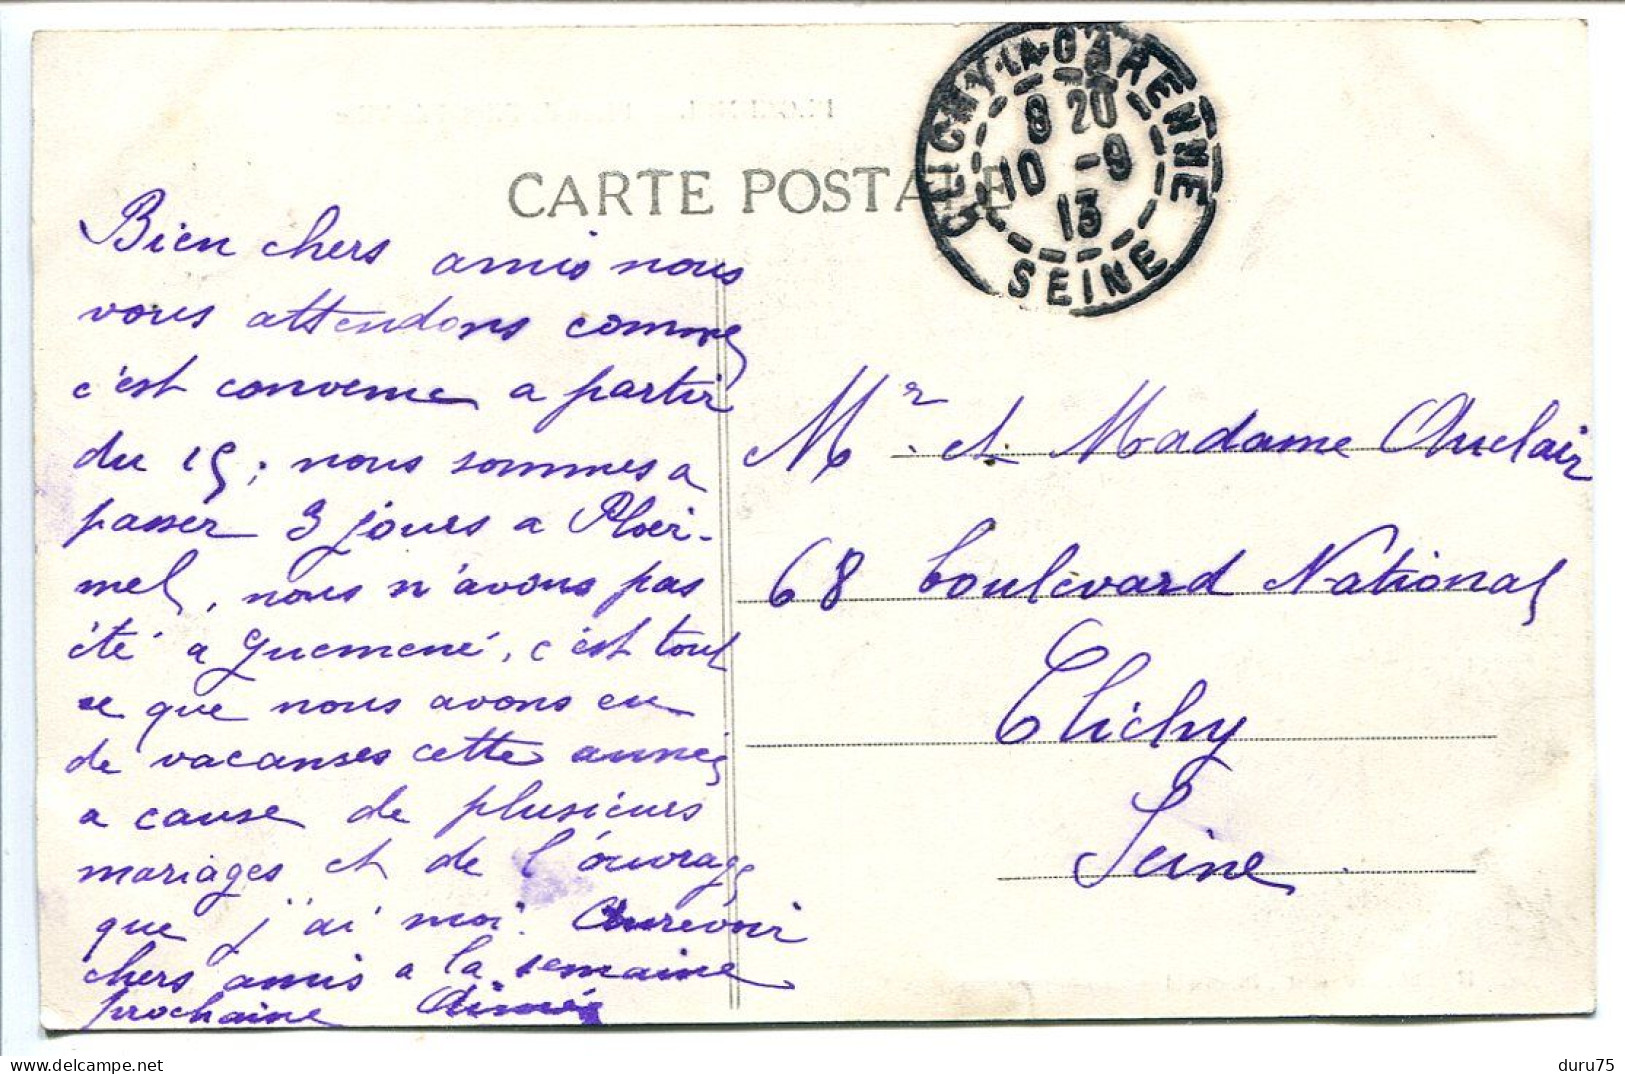 CARTE POSTALE
CLICHY-LA-GARENNE
8 20
10 -9
13
SEINE
Bien chers amis nous
vous attendons comme
c'est convenue a partir
du 15, nous sommes a
passer 3 jours a Ploër-
mel, nous n'avons pas
été a Guemené, c'est tout
ce que nous avons eu
de vacanses cette année
a cause de plusieurs
mariages et de l'ouvrage
que j'ai moi. Aurevoir
chers amis a la semaine
prochaine Aimée
Mr et Madame Auclair
68 boulevard National
Clichy
Seine
duru75